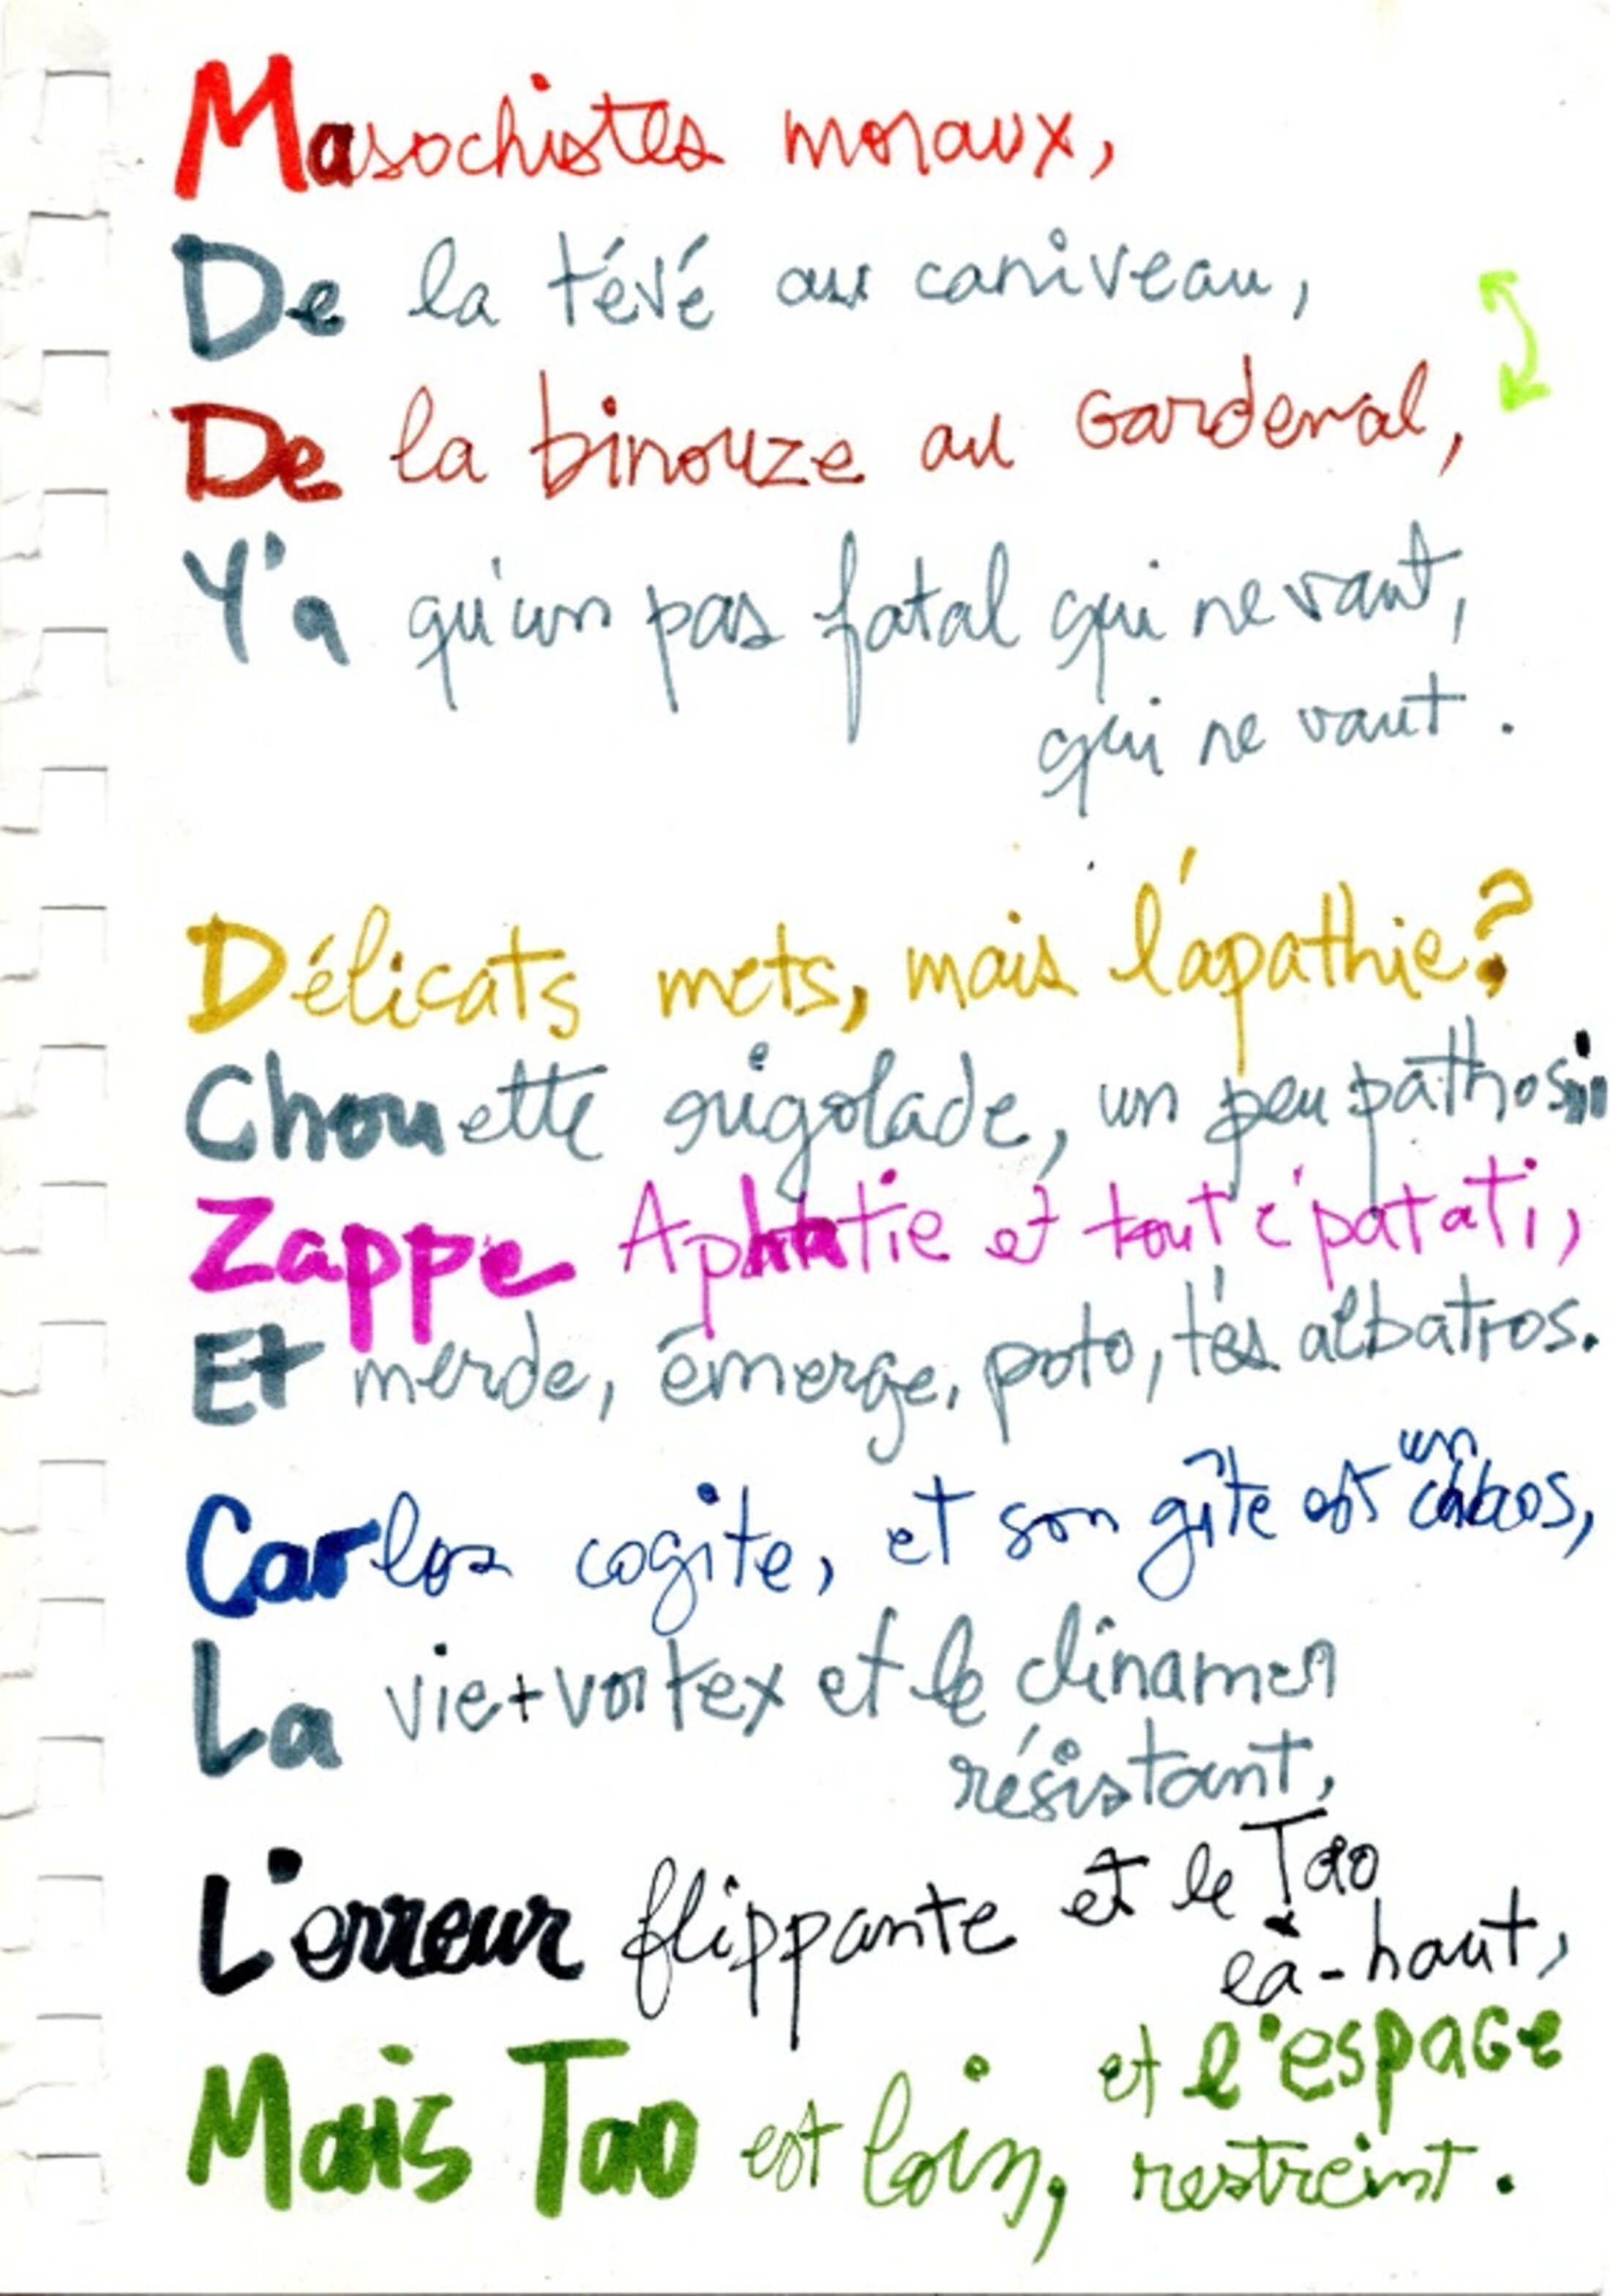 Masochistes moraux,
De la tévé au caniveau,
De la binouze au Gardenal,
Y'a qu'un pas fatal qui ne vaut,
qui ne vaut.
Délicats mets, mais l'apathie?
Chouette rigolade, un peu pathos
Zappe Aphatie et tout c'patati,
Et merde, émerge, poto, t'es albatros.
un
Carlos cogite, et son gîte est chaos,
La vie + vortex et le clinamen
résistant,
L'erreur flippante et le Tao
là-haut,
et l'espace
Mais Tao est loin, restreint.